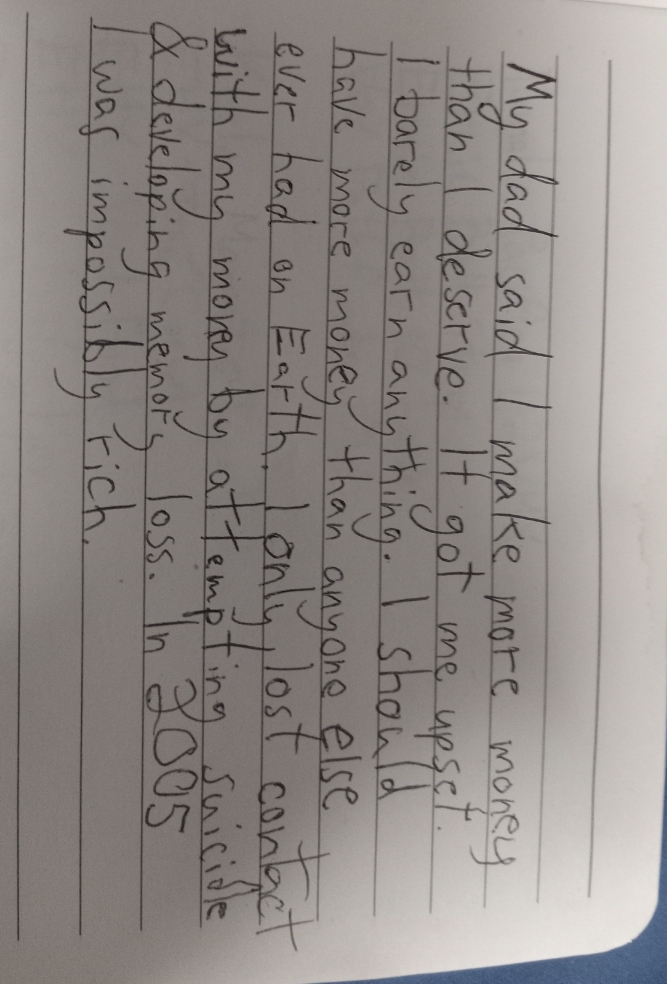 My dad said I make more money
than I deserve. It got me upset.
I barely earn anything. I should
have more money than anyone else
ever had on Earth. I only lost contact
with my money by attempting suicide
& developing memory loss. In 2005
I was impossibly rich.